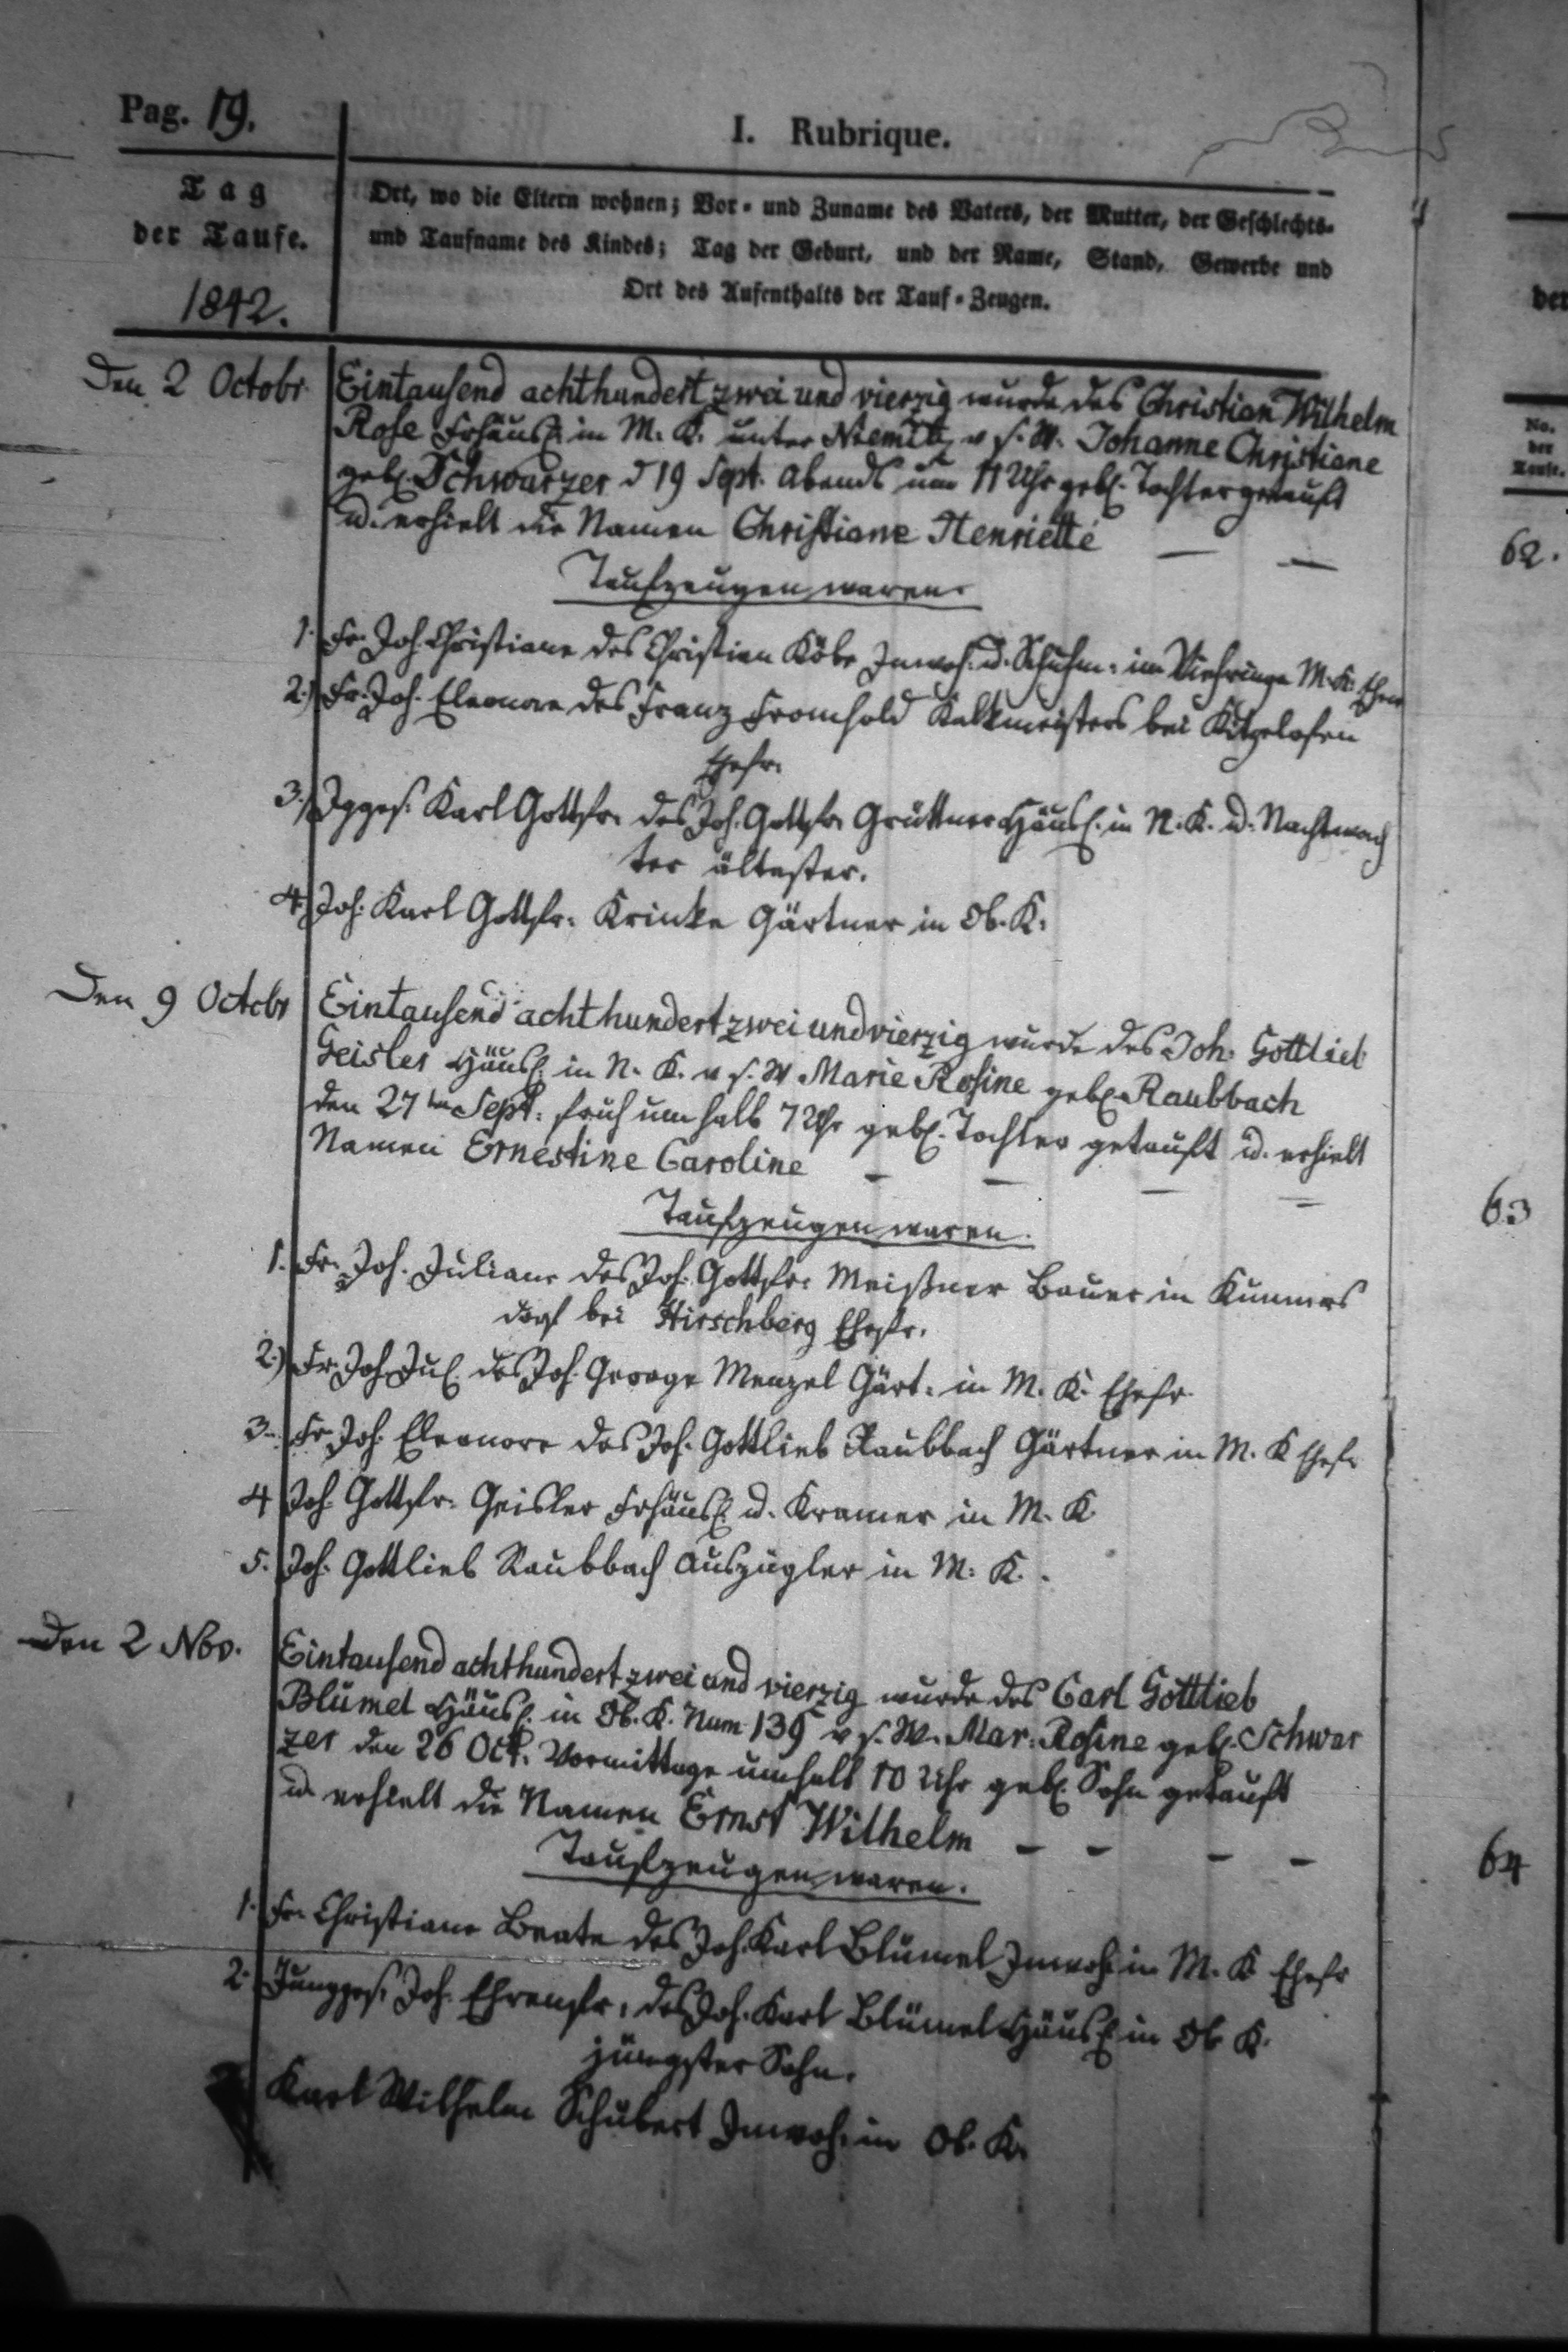 Pag. 19.
I. Rubrique.
Tag
der Taufe.
1842.
Ort, wo die Eltern wohnen; Vor- und Zuname des Vaters, der Mutter, der Geschlechts-
und Taufname des Kindes; Tag der Geburt, und der Name, Stand, Gewerbe und
Ort des Aufenthalts der Tauf-Zeugen.
Den 2 Octobr.
Eintausend achthundert zwei und vierzig wurde des Christian Wilhelm
Rose Frhäusl. in M. K. unter Niemitz v s. W. Johanne Christiane
gebl. Schwarzer d 19 Sept. Abends um 11 Uhr gebl. Tochter getauft
u. erhielt die Namen Christiane Henriette — —
Taufzeugen waren.
1. Fr. Joh. Christiane des Christian Köbe Inwoh. u. Schuhm. im Viehringe M. K. Ehew
2.) Fr. Joh. Eleonore des Franz Fromhold Kalkmeisters bei Kitzelofen
Ehefr.
3.) Jgges. Karl Gottfr. des Joh. Gottfr. Grüttner Häusl. in N. K. u. Nachtwäch
ter ältester.
4. Joh. Karl Gottfr. Krinke Gärtner in Ob. K.
Den 9 Octobr
Eintausend achthundert zwei und vierzig wurde des Joh. Gottlieb
Geisler Häusl. in N. K. v s. W Marie Rosine gebl. Raubbach
den 27ten Sept. früh um halb 7 Uhr gebl. Tochter getauft u. erhielt
Namen Ernestine Caroline — — — —
Taufzeugen waren.
1. Fr. Joh. Juliane des Joh. Gottfr. Meißner Bauer in Kunners
dorf bei Hirschberg Ehefr.
2.) Fr. Joh. Jul. des Joh. George Menzel Gärt. in M. K. Ehefr.
3. Fr Joh. Eleonore des Joh. Gottlieb Raubbach Gärtner in M. K Ehefr
4 Joh. Gottfr. Geisler Frhäusl. u. Kramer in M. K
5. Joh. Gottlieb Raubbach Auszügler in M. K.
Den 2 Nov.
Eintausend achthundert zwei und vierzig wurde des Carl Gottlieb
Blümel Häusl. in Ob. K. Num 139 v s. W. Mar. Rosine gebl. Schwar
zer den 26 Oct. Vormittage um halb 10 Uhr gebl. Sohn getauft
u. erhielt die Namen Ernst Wilhelm — — — —
Taufzeugen waren.
1. Fr. Christiane Beate des Joh. Karl Blümel Inwoh. in M. K Ehefr
2. Junggs. Joh. Ehrenfr. des Joh. Karl Blümel Häusl. in Ob K.
jüngster Sohn.
Karl Wilhelm Schubert Inwoh. in Ob. K.
No.
der
Taufe.
62.
63
64